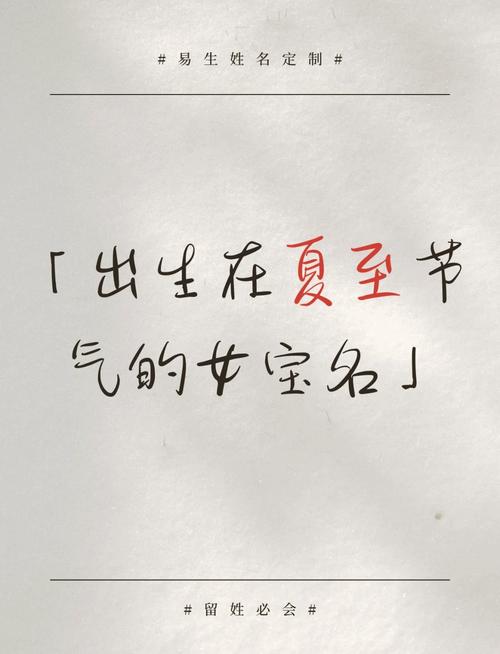 #易生姓名定制#
「出生在夏至节
气的女宝名」
#留姓必会#